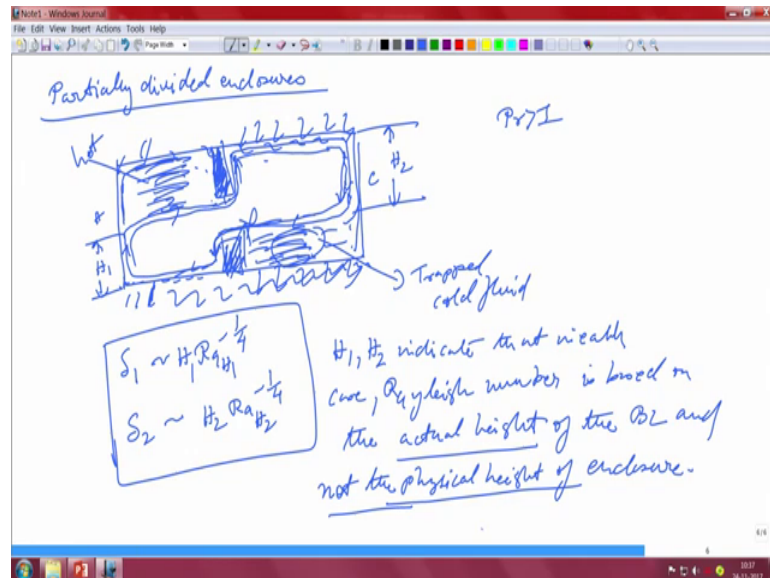 Note1 - Windows Journal
File Edit View Insert Actions Tools Help
Page Width
B I
Partially divided enclosures
Pr>1
hot
H
C
H2
H1
Trapped
cold fluid
δ1 ~ H1 Ra H1 -1/4
δ2 ~ H2 Ra H2 -1/4
H1, H2 indicate that in each
case, Rayleigh number is based on
the actual height of the BL and
not the physical height of enclosure.
6/6
6
10:37
24-11-2017